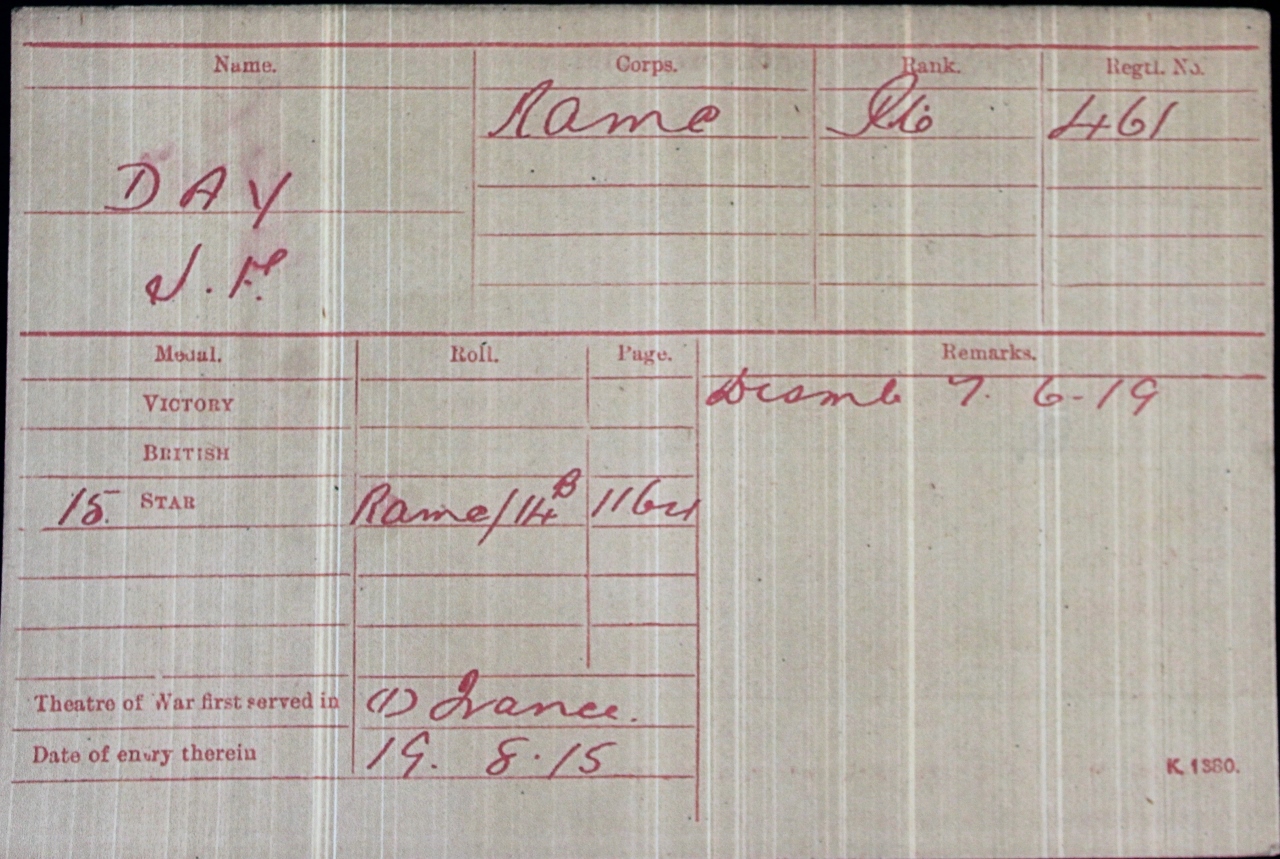 Name. Corps. Rank. Regtl. No.
RAMC Pte 461
DAY
J. F.
Medal. Roll. Page. Remarks.
VICTORY Disemb 7. 6-19
BRITISH
15 STAR RAMC/14B 1164
Theatre of War first served in (1) France.
Date of entry therein 19. 8.15
K. 1380.